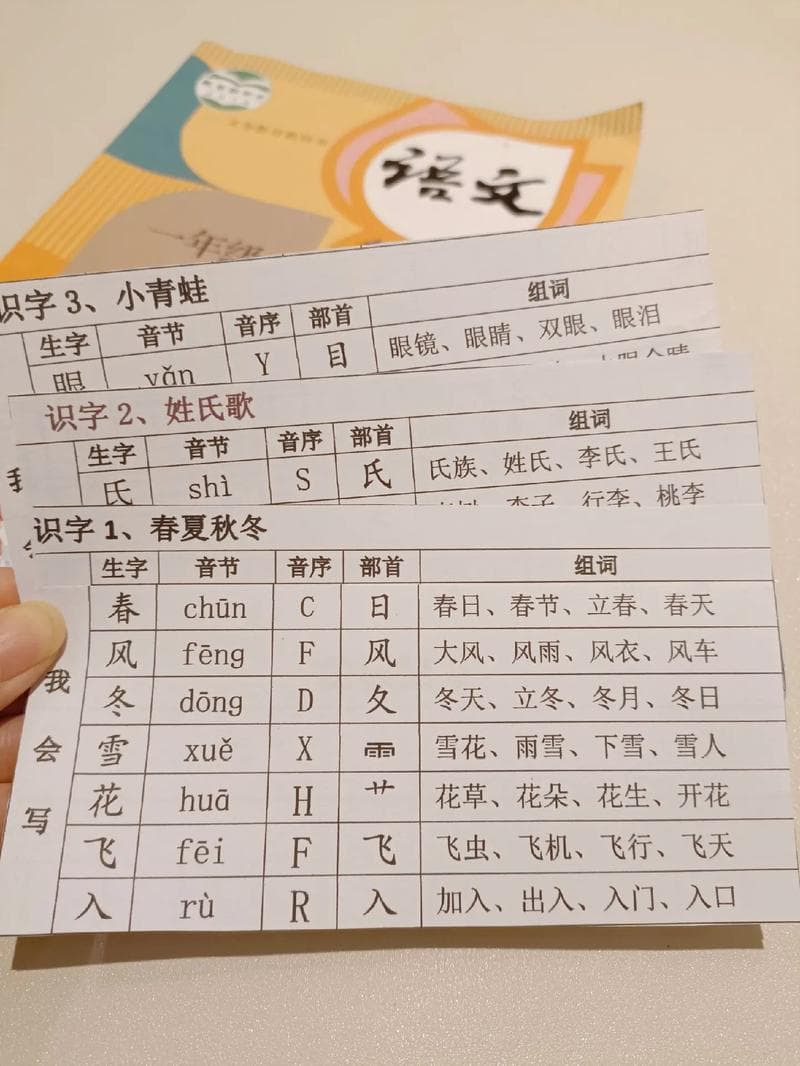 语文
一年级
识字 3、小青蛙
生字 音节 音序 部首 组词
眼 yǎn Y 目 眼镜、眼睛、双眼、眼泪
识字 2、姓氏歌
生字 音节 音序 部首 组词
氏 shì S 氏 氏族、姓氏、李氏、王氏
李子、行李、桃李
识字 1、春夏秋冬
生字 音节 音序 部首 组词
春 chūn C 日 春日、春节、立春、春天
风 fēng F 风 大风、风雨、风衣、风车
冬 dōng D 夂 冬天、立冬、冬月、冬日
雪 xuě X ⻗ 雪花、雨雪、下雪、雪人
花 huā H 艹 花草、花朵、花生、开花
飞 fēi F 飞 飞虫、飞机、飞行、飞天
入 rù R 入 加入、出入、入门、入口
我会写